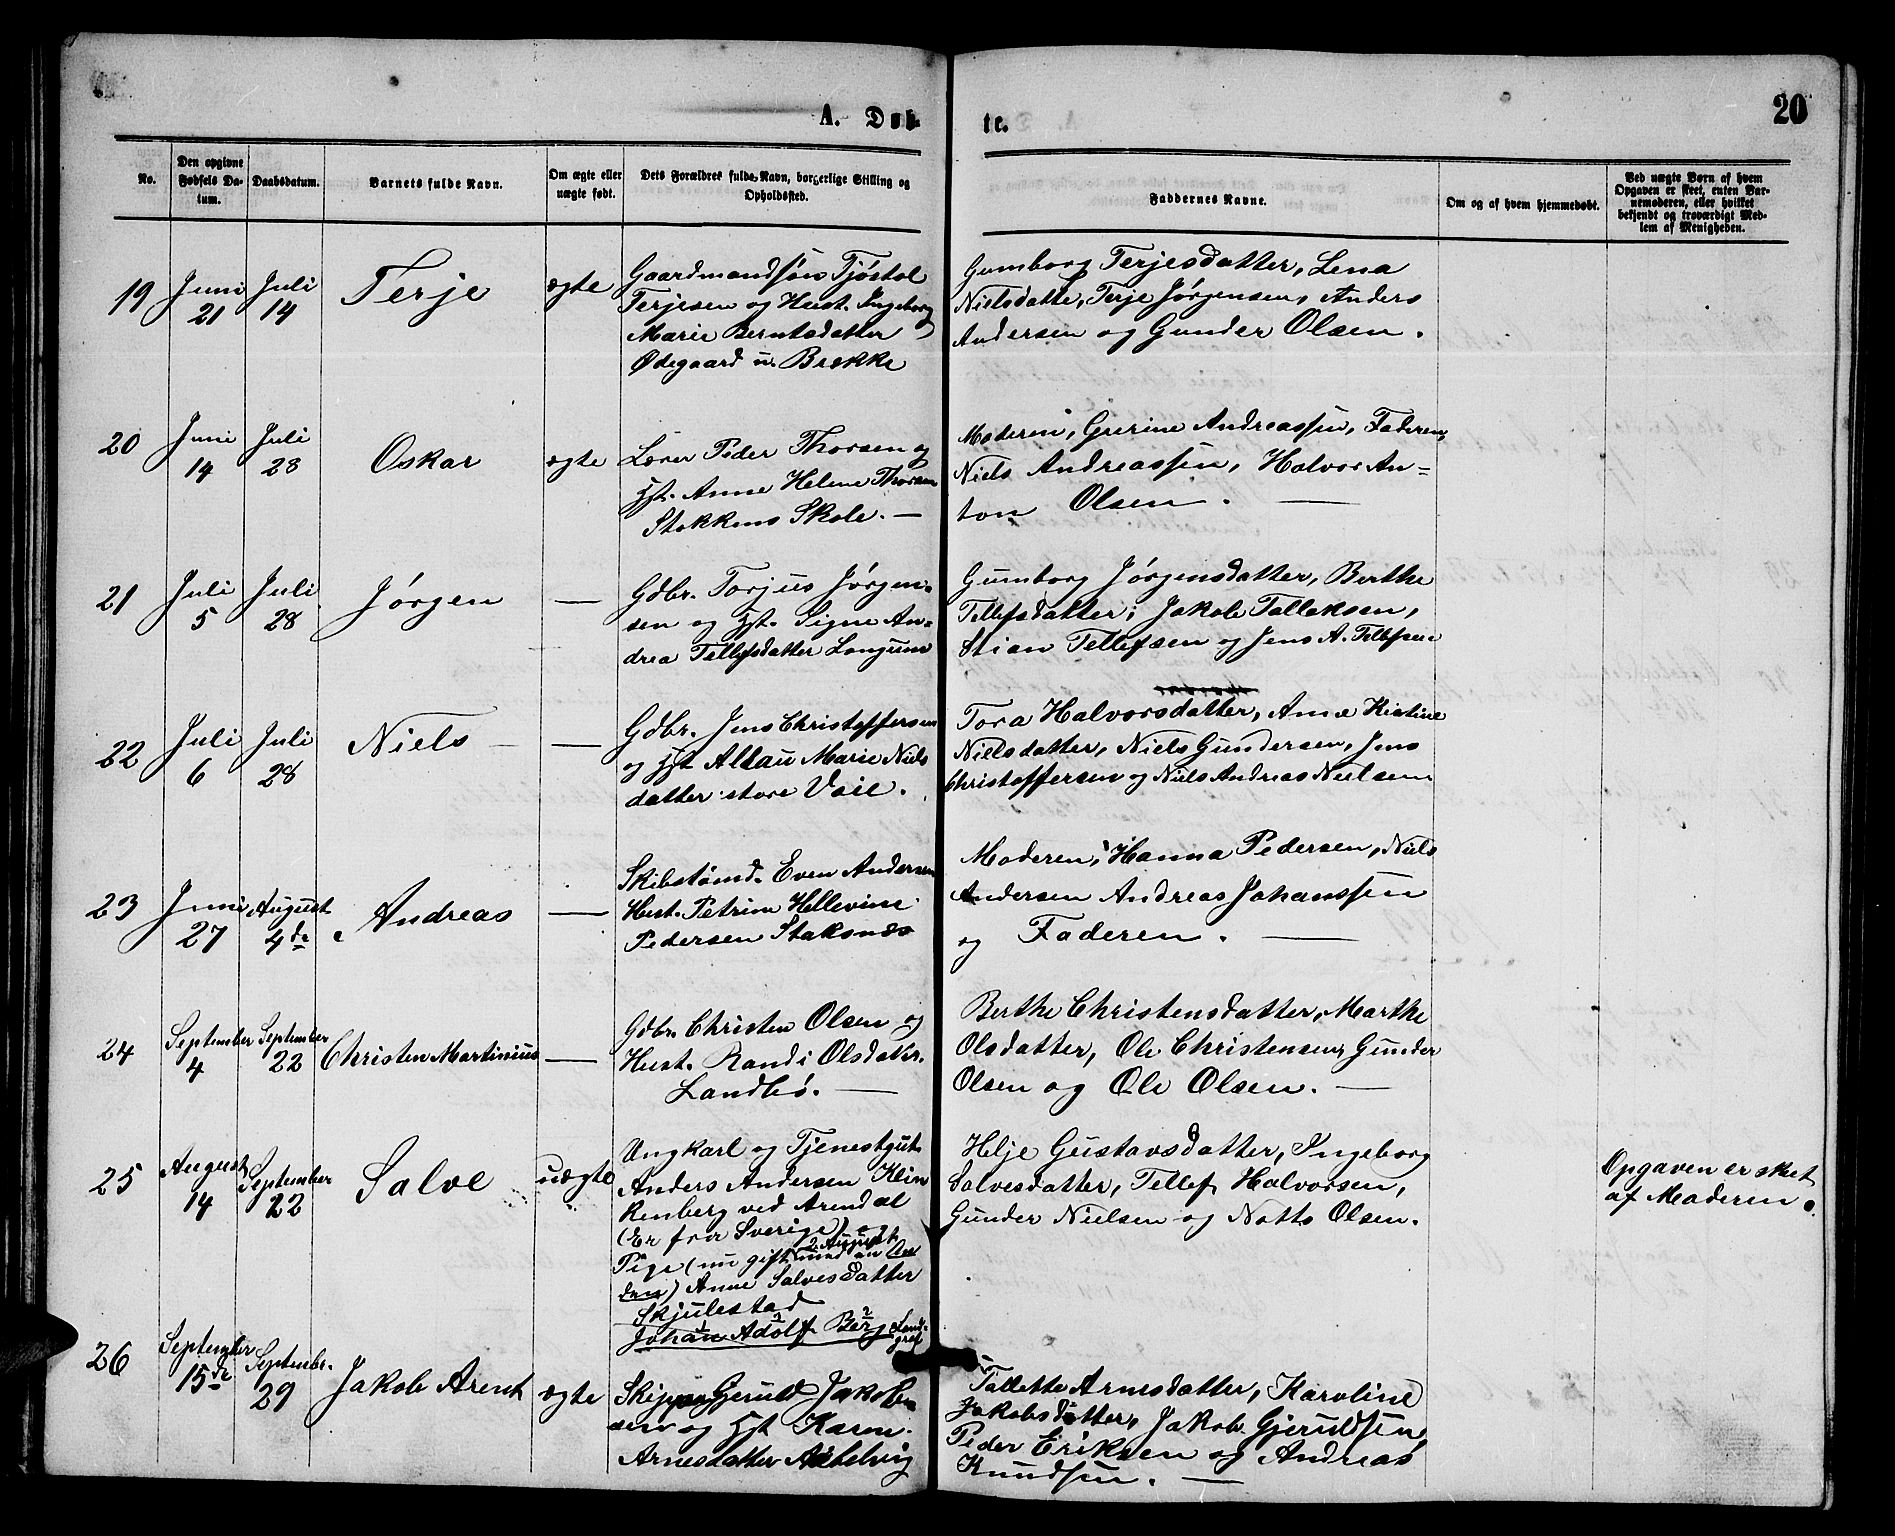 A. Døb-
te.
20
No.
Den opgivne Fødsels Da-
tum.
Daabsdatum.
Barnets fulde Navn.
Om ægte eller
uægte født.
Dets Forældres fulde Navn, borgerlige Stilling og
Opholdssted.
Faddernes Navne.
Om og af hvem hjemmedøbt.
Ved uægte Børn af hvem
Opgaven er skeet, enten Bar-
nemoderen, eller hvilket
bekjendt og troværdigt Med-
lem af Menigheden.
19
Juni
21
Juli
14
Terje
ægte
Gaardmandsøn Tjøstol
Terjesen og Hust. Ingeborg
Marie Berntsdatter
Ødegaard u. Brække
Gumborg Terjesdatter, Lena
Nielsdatter, Terje Jørgensen, Anders
Andersen og Gunder Olsen.
20
Juni
14
Juli
28
Oskar
ægte
Lærer Peder Thorsen og
Hst. Anne Helene Thorsen
Stokkens Skole. —
Moderen, Grerine Andreassen, Faderen,
Niels Andreassen, Halvor An=
ton Olsen. —
21
Juli
5
Juli
28
Jørgen
—
Gdbr. Torjus Jørgen-
sen og Hst. Signe An-
drea Tellefsdatter Longum
Gumborg Jørgensdatter, Berthe
Tellefsdatter, Jakob Tallaksen,
Stian Tellefsen og Jens A. Tellefsen
22
Juli
6
Juli
28
Niels
—
Gdbr. Jens Christoffersen
og Hst Marie Niels
datter store Vaie.
Tora Halvorsdatter, Anne Kistine
Nielsdatter, Niels Gundersen, Jens
Christoffersen og Niels Andreas Nielsen
23
Juni
27
August
4de
Andreas
—
Skibstømd. Even Andersen
Hust. Petrine Hellevine
Pedersen Staksnæs
Moderen, Hanna Pedersen, Niels
Andersen Andreas Johanssen
og Faderen. —
24
September
4
September
22
Christen Martinius
—
Gdbr. Christen Olsen og
Hust. Randi Olsdatr.
Landbø. —
Berthe Christensdatter, Marthe
Olsdatter, Ole Christensen, Gunder
Olsen og Ole Olsen. —
25
August
14
September
22
Salve
uægte
Ungkarl og Tjenestgut
Anders Andersen Klin
kenberg ved Arendal
(Er fra Sverige) og
2 August
Pige (nu gift med en An
den) Anne Salvesdatter
Skjulestad
Johan Adolf Berg
Helje Gustavsdatter, Ingeborg
Salvesdatter, Tellef Halvorsen,
Gunder Nielsen og Notto Olsen.
Opgaven er skeet
af Moderen.
26
September
15de
Septembr.
29
Jakob Arent
ægte
Skipper Gjeruld Jakob
sen og Hst Karen
Arnesdatter
Tallette Arnesdatter, Karoline
Jakobsdatter, Jakob Gjeruldsen,
Peder Eriksen og Andreas
Knudsen. —